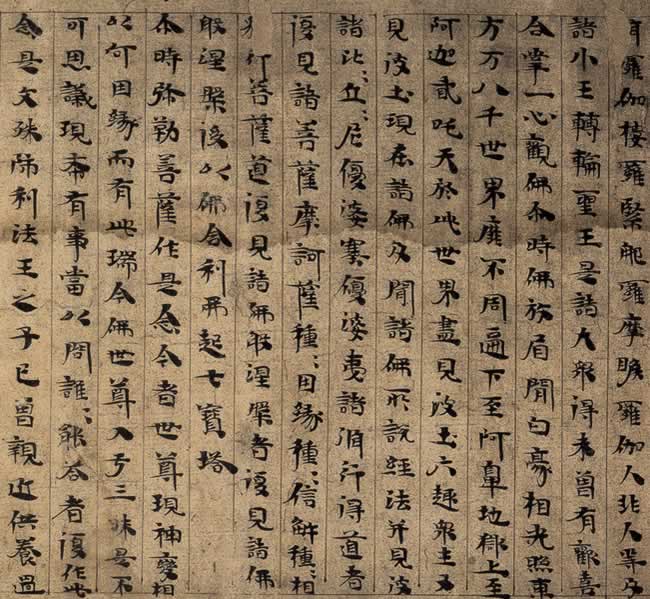 羅伽樓羅緊那羅摩睺羅伽人非人等及
諸小王轉輪聖王是諸大衆得未曾有歡喜
合掌一心觀佛尒時佛放眉間白豪相光照東
方万八千世界靡不周遍下至阿鼻地獄上至
阿迦貳吒天於此世界盡見彼土六趣衆生又
見彼土現在諸佛及聞諸佛所説經法并見彼
諸比〻丘〻尼優婆塞優婆夷諸脩行得道者
復見諸菩薩摩訶薩種〻因緣種〻信解種〻相
皃行菩薩道復見諸佛般涅槃者復見諸佛
般涅槃後以佛舍利起七寶塔
尒時弥勒菩薩作是念今者世尊現神變相
以何因緣而有此瑞今佛世尊入于三昧是不
可思議現希有事當以問誰〻能答者復作此
念是文殊師利法王之子已曾親近供養過